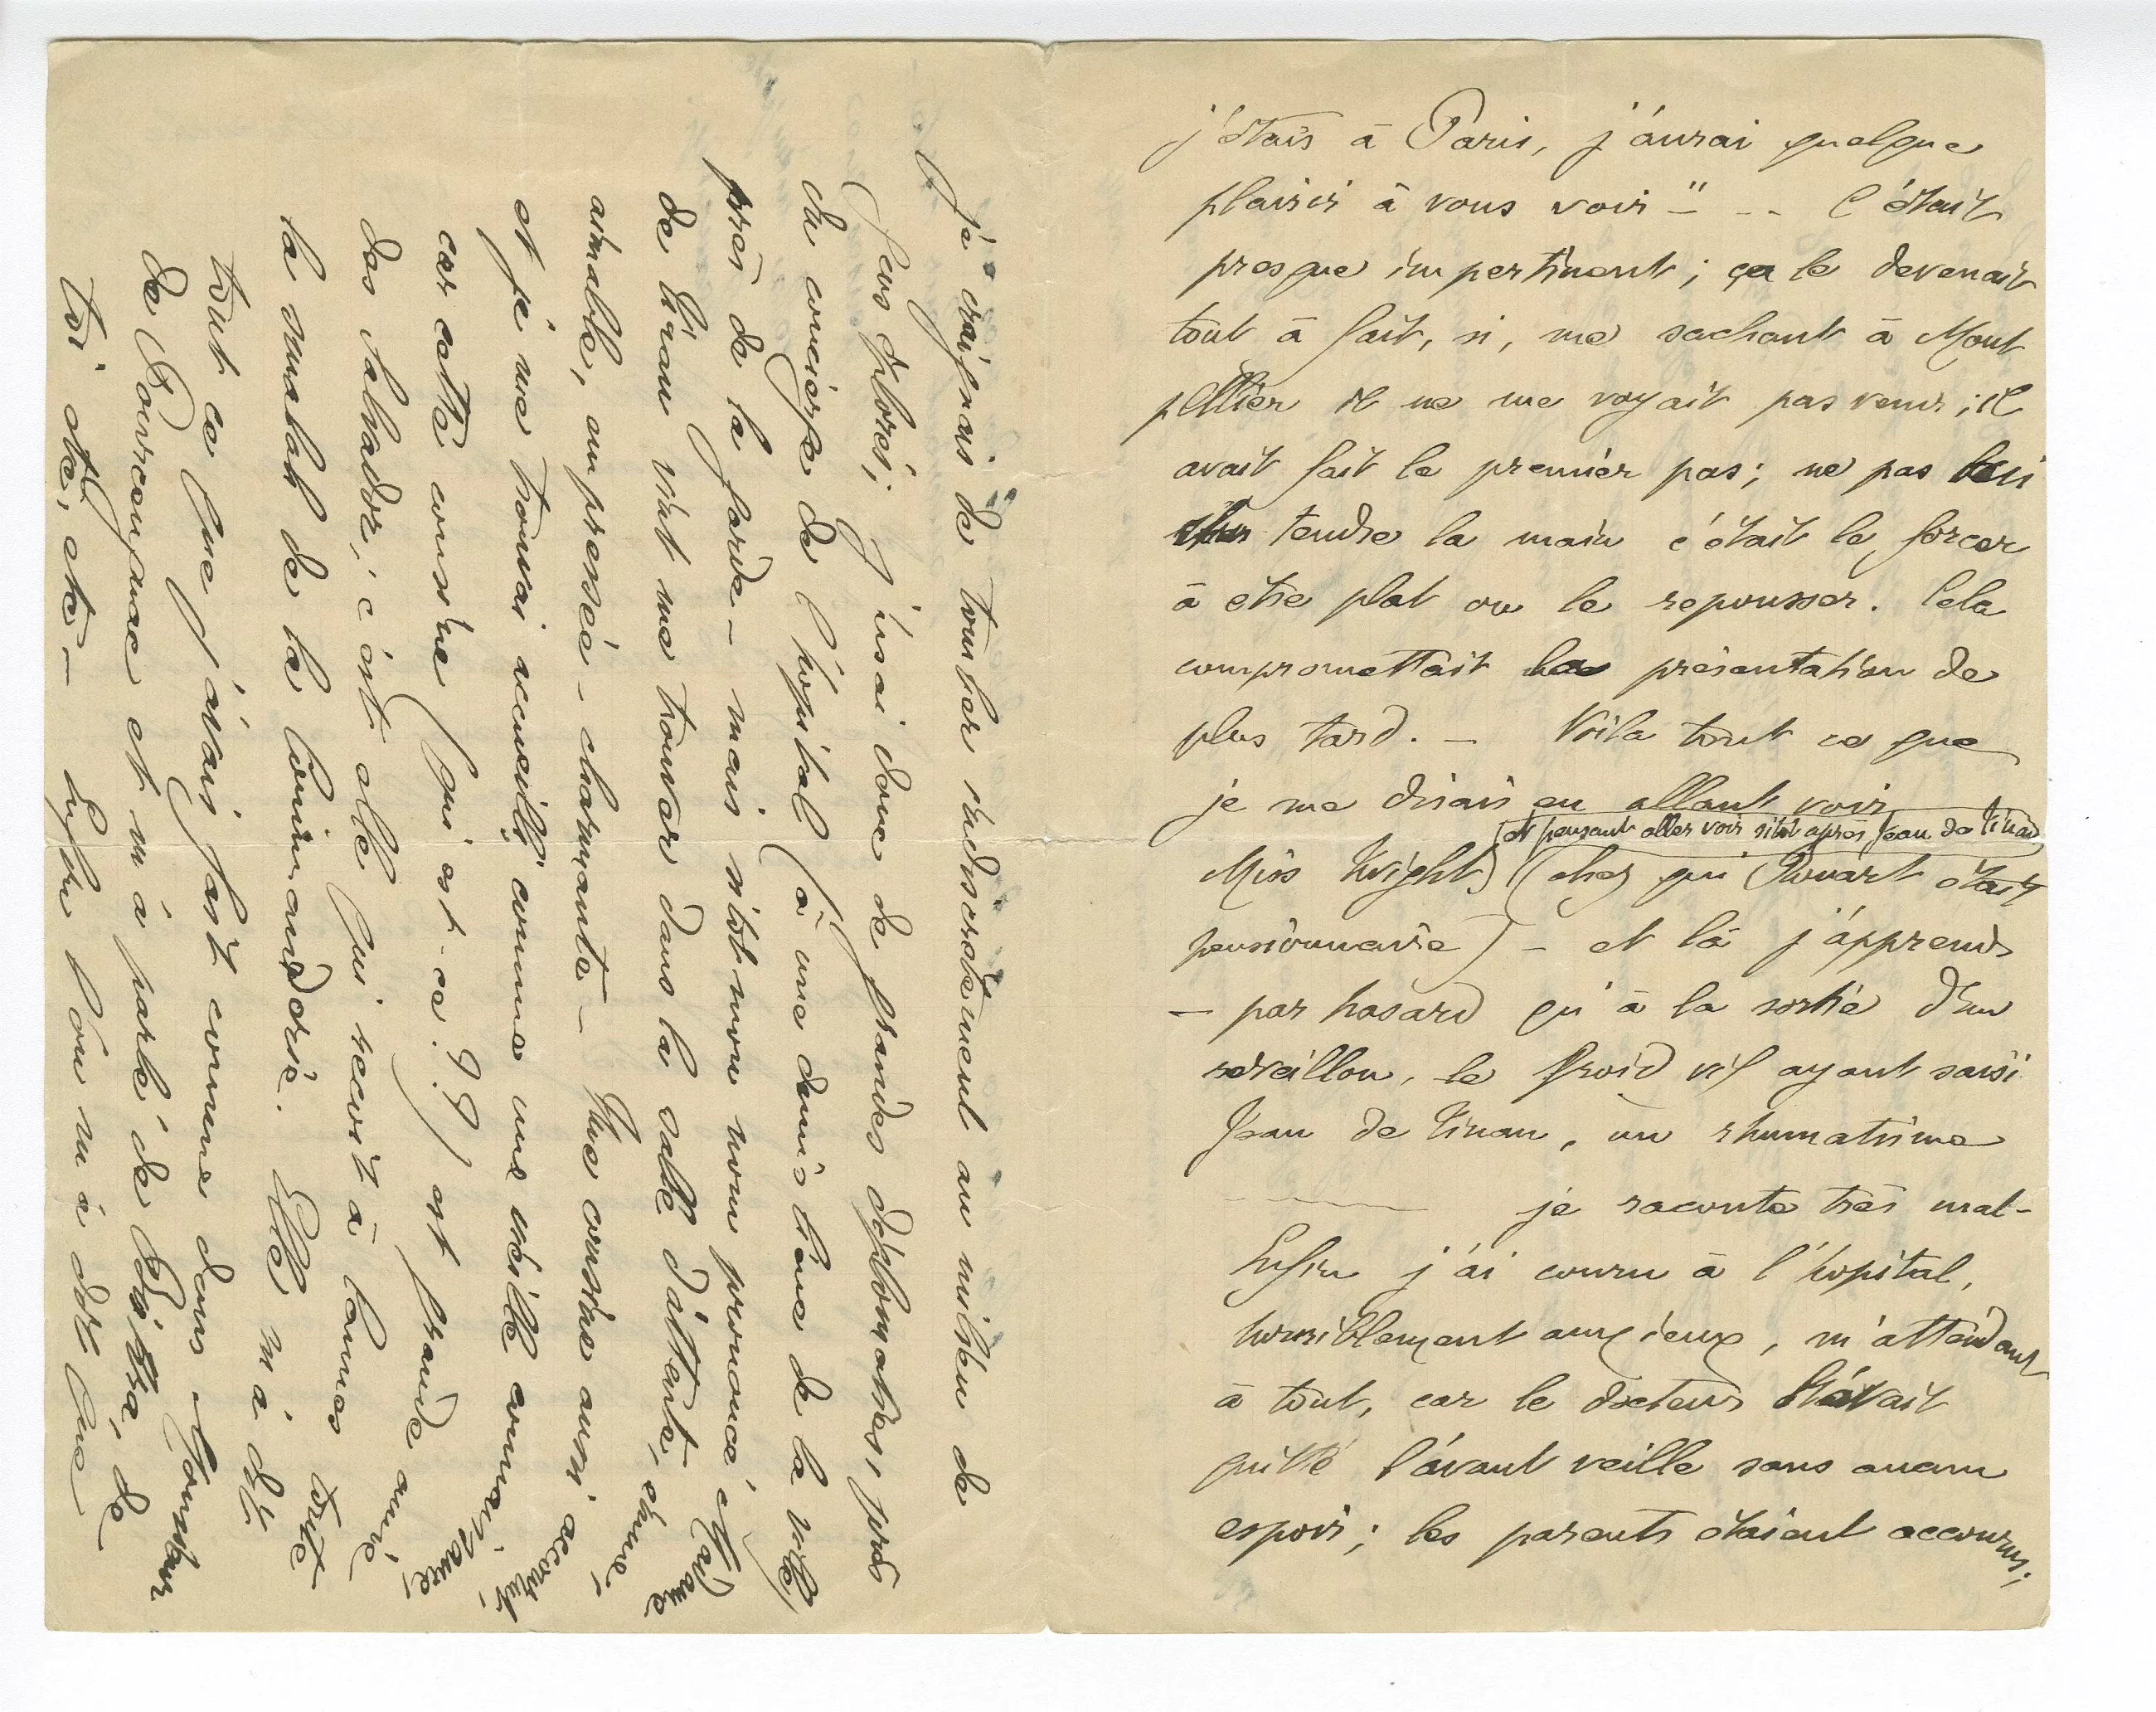 j'étais à Paris, j'aurai quelque
plaisir à vous voir" - - - C'était
presque impertinent ; ça le devenait
tout à fait, si, me sachant à Mont
pellier il ne me voyait pas venir ; il
avait fait le premier pas ; ne pas lui
tendre la main c'était le forcer
à être plat ou le repousser. Cela
compromettait la présentation de
plus tard. — Voilà tout ce que
je me disais en allant voir
(et pensant aller voir sitôt après Jean de Tinan)
Miss Wright (chez qui Rouart était
pensionnaire) - et là j'apprends
— par hasard qu'à la sortie d'un
réveillon, le froid vif ayant saisi
Jean de Tinan, un rhumatisme
je raconte très mal -
Enfin j'ai couru à l'hôpital,
horriblement anxieux, m'attendant
à tout, car le docteur l'avait
quitté l'avant veille sans aucun
espoir ; les parents étaient accourus ;
je craignais de tomber indiscrètement au milieu de
gens éplorés ; J'usai donc de grandes diplomaties, près
du concierge de l'hôpital (à une demi lieue de la ville)
près de la garde - mais sitôt mon nom prononcé, Madame
de Tinan vint me trouver dans la salle d'attente, émue,
aimable, empressée - charmante — Une cousine aussi accourut,
et je me trouvai accueilli comme une vieille connaissance,
car cette cousine (qui est-ce ? ?) est grande amie
des Salvador, c'est elle qui reçoit à Cannes toute
la smalah de la Commanderie. Elle m'a dit
tout ce que j'avais fait comme dans Monsieur
de Pourceaugnac et m'a parlé de Biskra, de
toi etc, etc — Enfin l'on m'a dit que